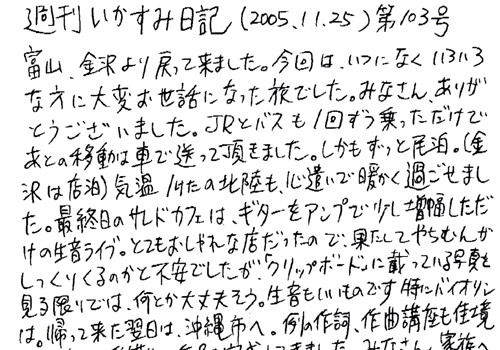 週刊いかすみ日記(2005.11.25)第103号
富山、金沢より戻って来ました。今回は、いつになくいろいろ
な方に大変お世話になった旅でした。みなさん、ありが
とうございました。JRとバスも1回ずつ乗っただけで
あとの移動は車で送って頂きました。しかもずっと民泊。(金
沢は店泊)気温1ケタの北陸も、心遣いで暖かく過ごせまし
た。最終日のサレドカフェは、ギターをアンプで少し増幅しただ
けの生音ライブ。とてもおしゃれな店だったので、果たしてやちむんが
しっくりくるのかと不安でしたが、「クリップボード」に載っている写真を
見る限りでは、何とか大丈夫そう。生音もいいものです。特にバイオリン
は。帰って来た翌日は、沖縄市へ。例の作詞、作曲講座も佳境
みなさん、家族へ